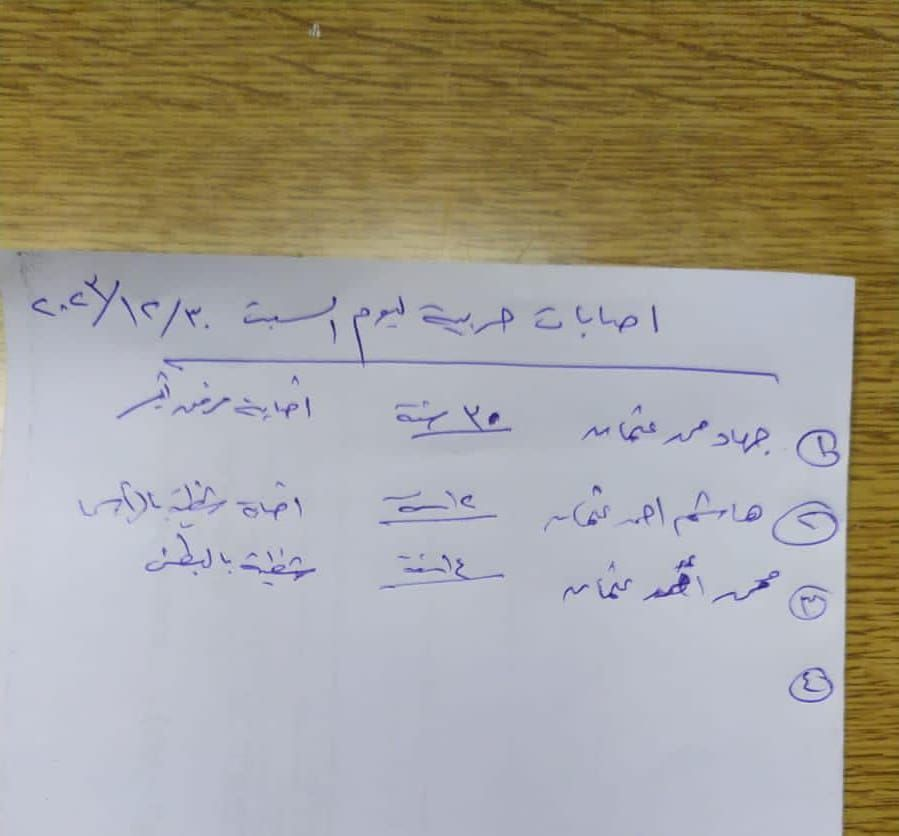 اصابات حربية ليوم السبت ٣٠/١٢/٢٠٢٣
١ جهاد محمد عثمان ٣٥ سنة اصابة
٢ هاشم احمد عثمان ١٢ سنة اصابة شظية بالرأس
٣ محمد أحمد عثمان ١٤ سنة شظية بالبطن
٤